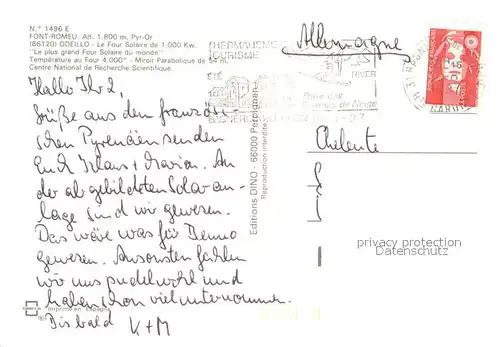 N.° 1496 E
FONT-ROMEU, Alt. 1.800 m, Pyr-Or
(66120) ODEILLO - Le Four Solaire de 1.000 Kw.
"Le plus grand Four Solaire du monde"
Température au Four 4.000° - Miroir Parabolique de 54 m.
Centre National de Recherche Scientifique.
THERMALISME
TOURISME
ÉTÉ
HIVER
Allemagne
Hallo Ihr 2,
Grüße aus den französi-
schen Pyrenäen senden
Euch Klaus + Marion. An
der abgebildeten Solaran-
lage sind wir gewesen.
Das wäre was für Benno
gewesen. Ansonsten fühlen
wir uns pudelwohl und
haben schon viel unternommen.
Bis bald K+M
Imprimé en Espagne
Editions DINO - 66000 Perpignan
Reproduction interdite
privacy protection
Datenschutz